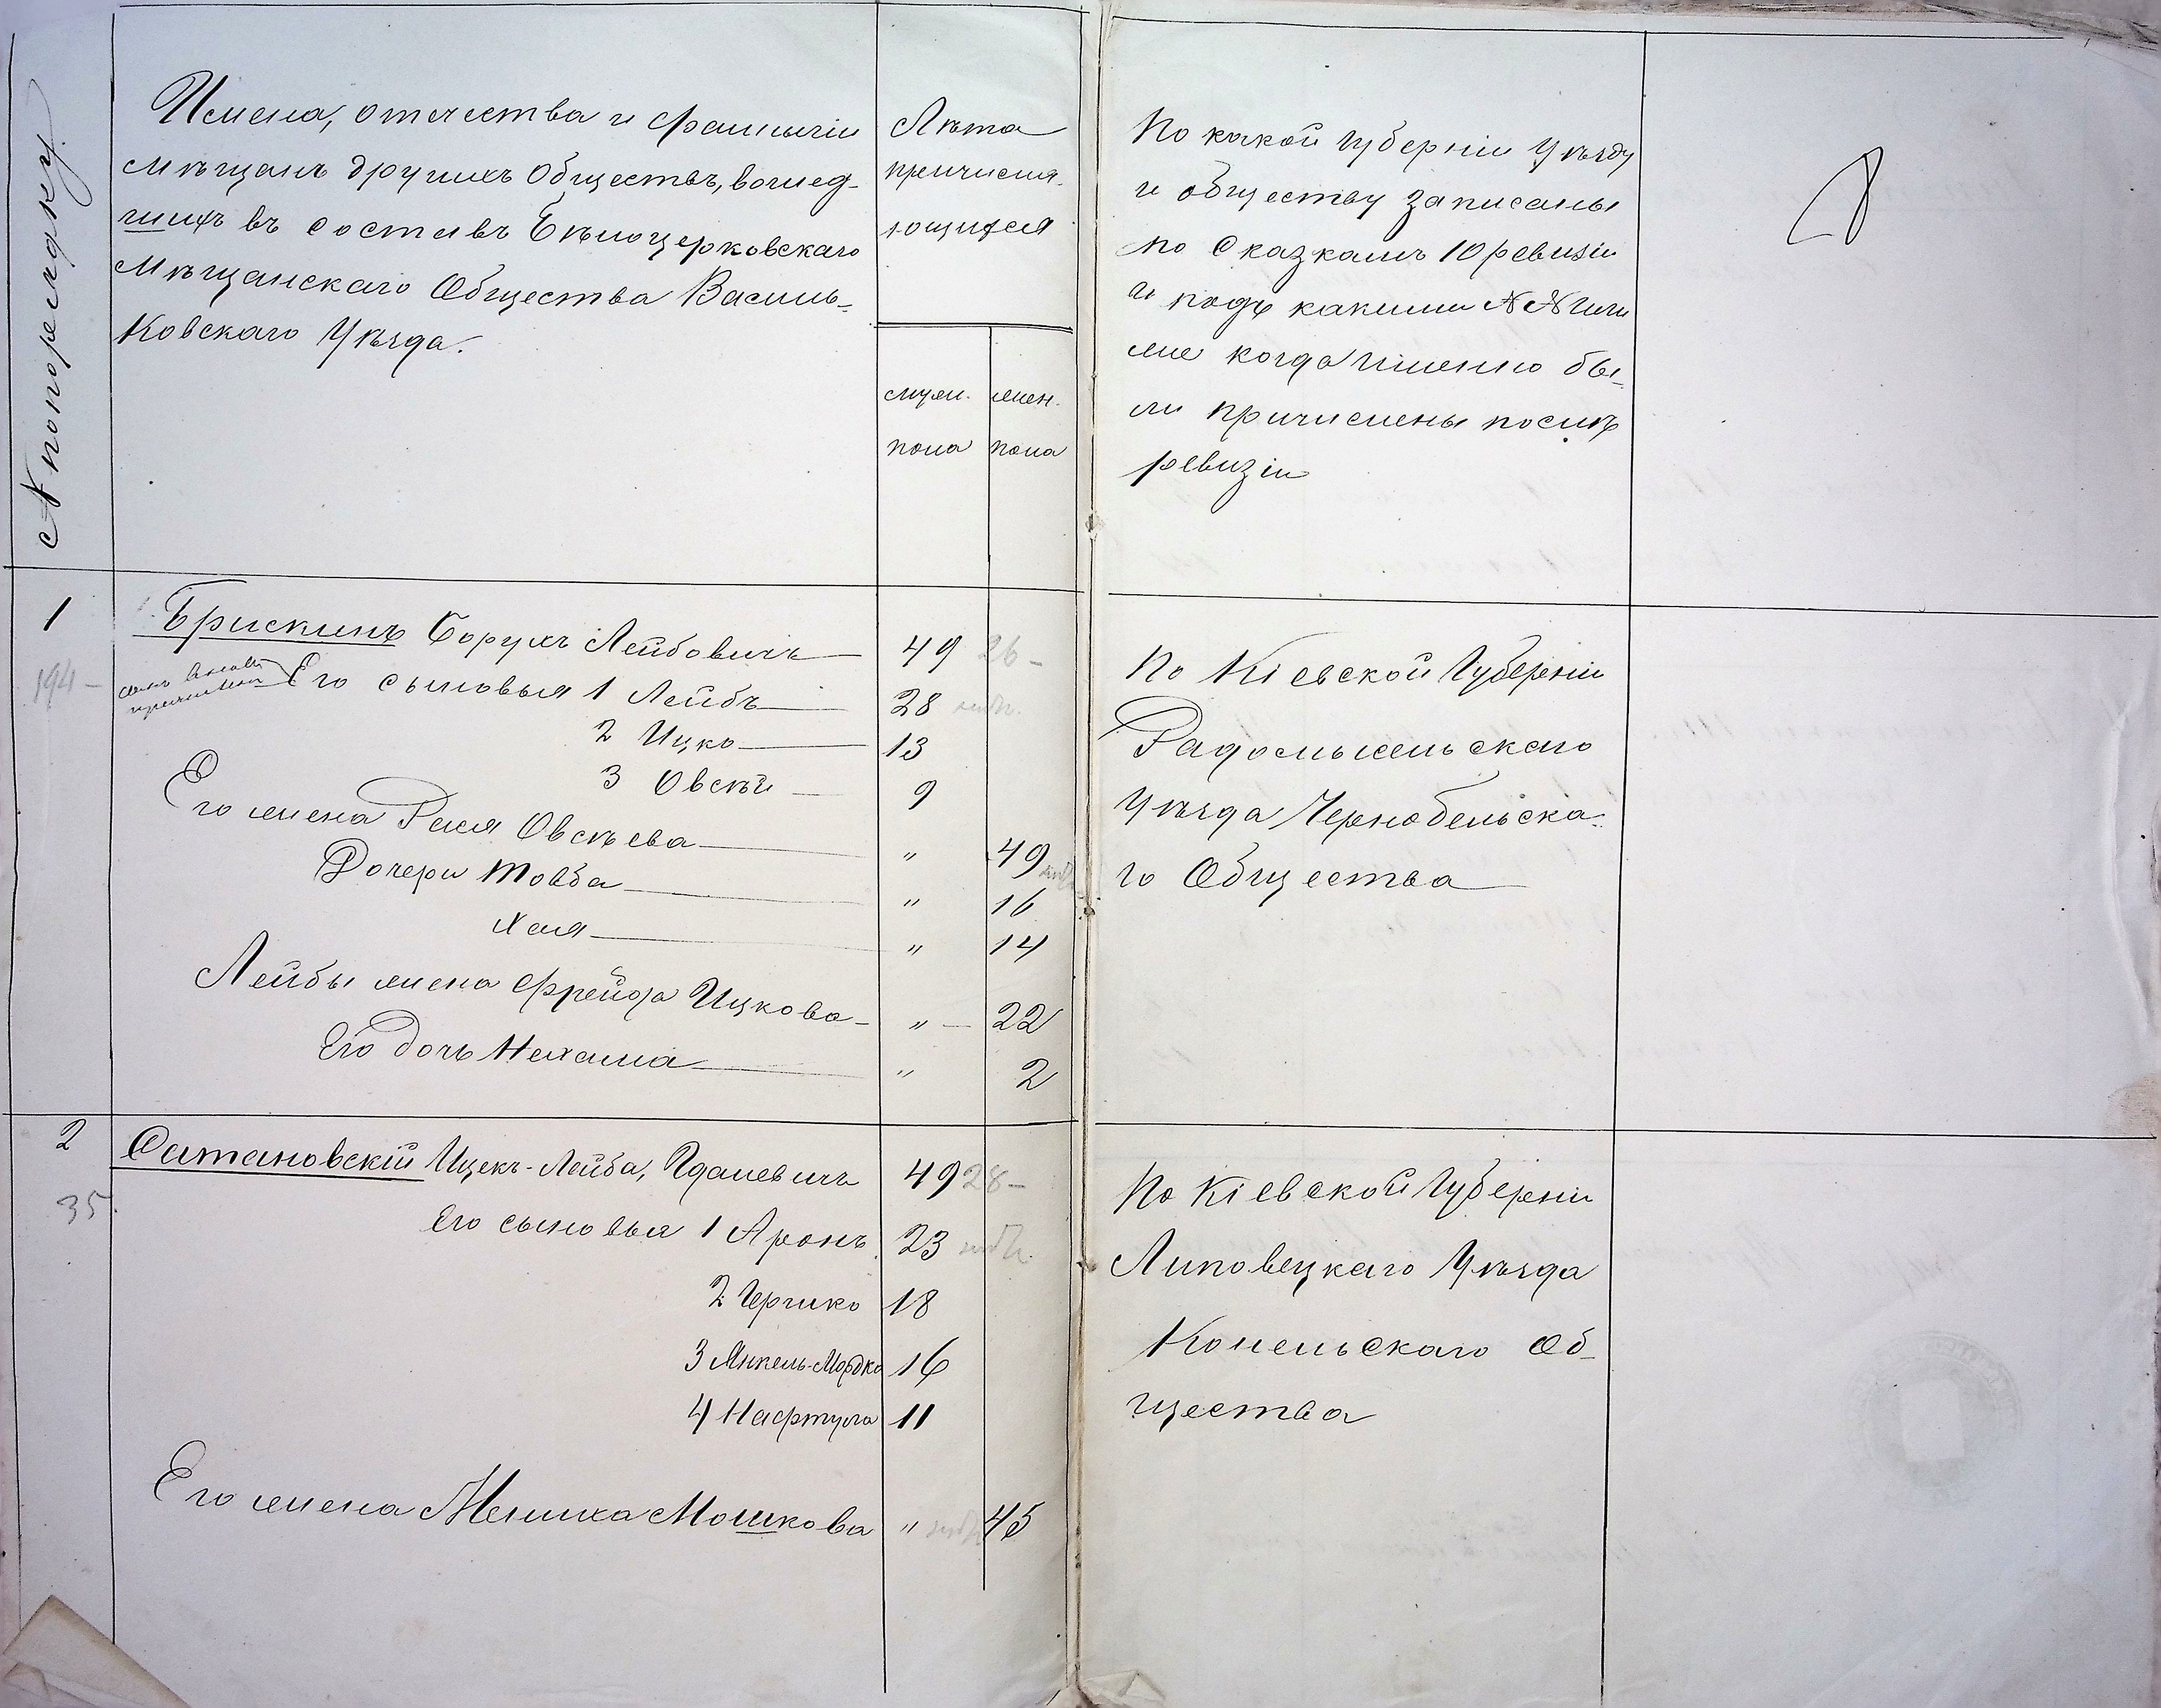 № по порядку
Имена, отчества и фамиліи
мѣщанъ другихъ обществъ, вошед-
шихъ въ составъ Бѣлоцерковскаго
Мѣщанскаго Общества Василь-
ковскаго Уѣзда.
Лѣта
причисля-
ющихся
муж. жен.
пола пола
По какой губерніи Уѣзду
и обществу записаны
по сказкамъ 10 ревизіи
и подъ какими №№ или
же когда именно бы-
ли причислены послѣ
ревизіи
1 Брискинъ Борухъ Лейбовичъ 49 26 -
194 - Его сыновья 1 Лейбъ 28
2 Ицко 13
3 Овсѣй 9
Его жена Рися Овсѣева " 49
Дочери Товба " 16
Хая " 14
Лейбы жена Фрейда Ицкова - " - 22
Его дочь Нехама " 2
По Кіевской Губерніи
Радомысльскаго
Уѣзда Чернобельска-
го Общества
2 Сатановскій Ицекъ-Лейба, Идалевичъ 49 28 -
35 Его сыновья 1 Аронъ 23
2 Гершко 18
3 Янкель-Мордко 16
4 Нафтула 11
Его жена Мениха Мошкова " 45
По Кіевской Губерніи
Липовецкаго Уѣзда
Конельскаго Об-
щества